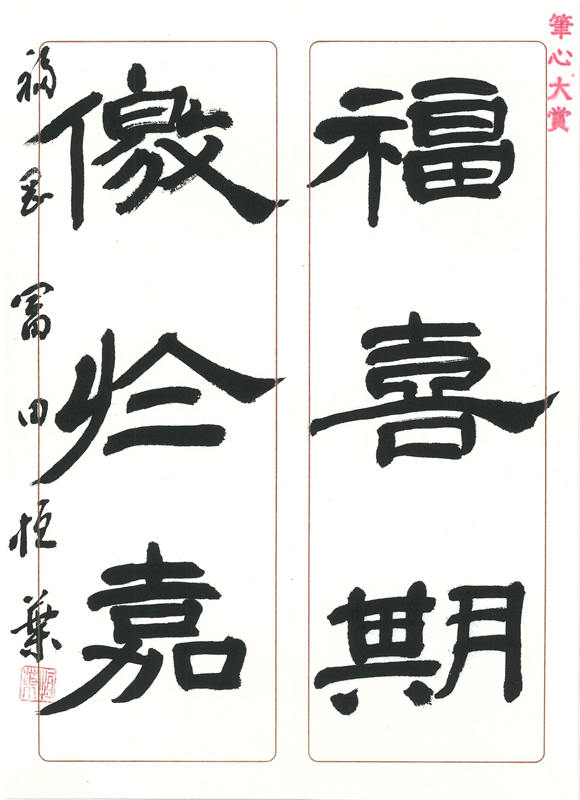 筆心大賞
福喜期
儌於嘉
福岡 冨田恒葉